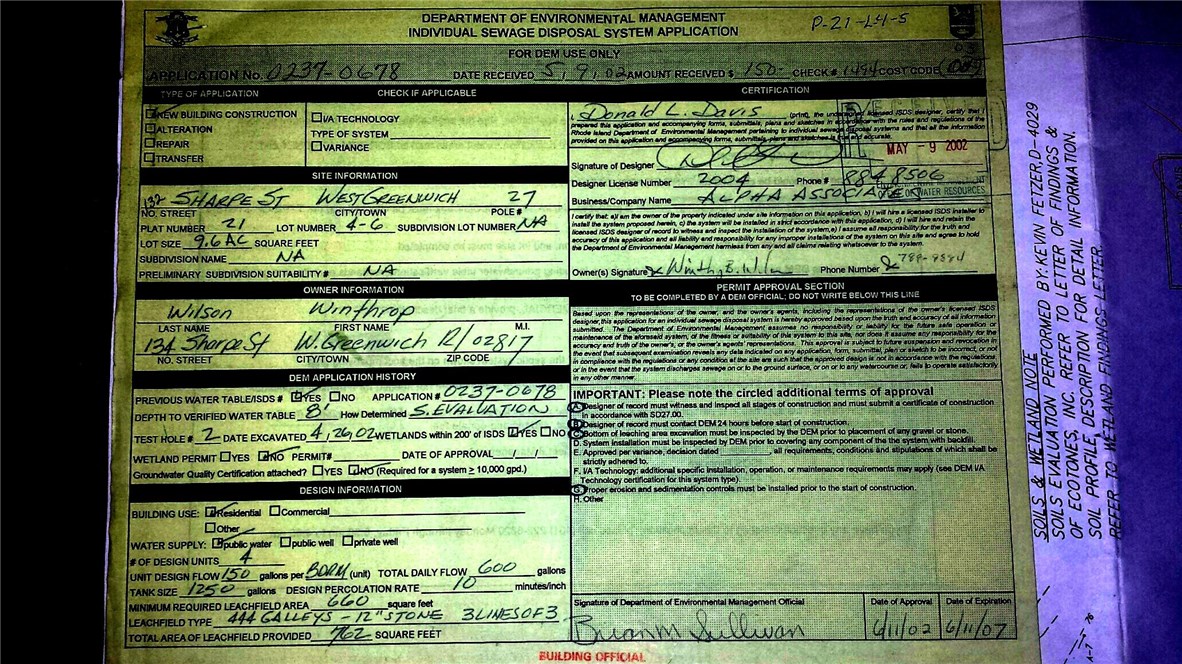 DEPARTMENT OF ENVIRONMENTAL MANAGEMENT
INDIVIDUAL SEWAGE DISPOSAL SYSTEM APPLICATION
P-21-L4-5
FOR DEM USE ONLY
APPLICATION No. 0237-0678 DATE RECEIVED 5, 9, 02 AMOUNT RECEIVED $ 150- CHECK # 1494 COST CODE
TYPE OF APPLICATION
CHECK IF APPLICABLE
NEW BUILDING CONSTRUCTION
ALTERATION
REPAIR
TRANSFER
I/A TECHNOLOGY
TYPE OF SYSTEM
VARIANCE
SITE INFORMATION
SHARPE ST WEST GREENWICH 27
NO. STREET CITY/TOWN POLE#
PLAT NUMBER 21 LOT NUMBER 4-6 SUBDIVISION LOT NUMBER NA
LOT SIZE 9.6 AC SQUARE FEET
SUBDIVISION NAME NA
PRELIMINARY SUBDIVISION SUITABILITY # NA
OWNER INFORMATION
Wilson Winthrop
LAST NAME FIRST NAME M.I.
134 Sharpe St W. Greenwich RI 02817
NO. STREET CITY/TOWN ZIP CODE
DEM APPLICATION HISTORY
PREVIOUS WATER TABLE/ISDS # YES NO APPLICATION # 0237-0678
DEPTH TO VERIFIED WATER TABLE 8' How Determined S. EVALUATION
TEST HOLE # 2 DATE EXCAVATED 4, 26, 02 WETLANDS within 200' of ISDS YES NO
WETLAND PERMIT YES NO PERMIT# DATE OF APPROVAL / /
Groundwater Quality Certification attached? YES NO (Required for a system ≥ 10,000 gpd.)
DESIGN INFORMATION
BUILDING USE: Residential Commercial
Other
WATER SUPPLY: public water public well private well
# OF DESIGN UNITS 4
UNIT DESIGN FLOW 150 gallons per BDRM (unit) TOTAL DAILY FLOW 600 gallons
TANK SIZE 1250 gallons DESIGN PERCOLATION RATE 10 minutes/inch
MINIMUM REQUIRED LEACHFIELD AREA 660 square feet
LEACHFIELD TYPE 444 GALLEYS - 12" STONE 3 LINES OF 3
TOTAL AREA OF LEACHFIELD PROVIDED 762 SQUARE FEET
CERTIFICATION
I, Donald L. Davis (print), the undersigned licensed ISDS designer, certify that I
prepared this application and accompanying forms, submittals, plans and sketches in accordance with the rules and regulations of the
Rhode Island Department of Environmental Management pertaining to individual sewage disposal systems and that all the information
provided on this application and accompanying forms, submittals, plans and sketches is true and accurate.
MAY - 9 2002
Signature of Designer
Designer License Number 2004 Phone # 884 8506
OFFICE OF WATER RESOURCES
Business/Company Name ALPHA ASSOCIATES
I certify that: a) I am the owner of the property indicated under site information on this application, b) I will hire a licensed ISDS installer to
install the system proposed herein, c) the system will be installed in strict accordance with this application, d) I will hire and retain the
licensed ISDS designer of record to witness and inspect the installation of the system, e) I assume all responsibility for the truth and
accuracy of this application and all liability and responsibility for any improper installations of the system on this site and agree to hold
the Department of Environmental Management harmless from any and all claims relating whatsoever to the system.
Owner(s) Signature Phone Number
PERMIT APPROVAL SECTION
TO BE COMPLETED BY A DEM OFFICIAL; DO NOT WRITE BELOW THIS LINE
Based upon the representations of the owner, and the owner's agents, including the representations of the owner's licensed ISDS
designer, this application for an individual sewage disposal system is hereby approved based upon the truth and accuracy of all information
submitted. The Department of Environmental Management assumes no responsibility or liability for the future safe operation or
maintenance of the aforesaid system, or the fitness or suitability of this system to this site, nor does it assume any responsibility for the
accuracy and truth of the owner's, or the owner's agents' representations. This approval is subject to future suspension and revocation in
the event that subsequent examination reveals any data indicated on any application, form, submittal, plan or sketch to be incorrect, or not
in compliance with the regulations or any condition at the site are such that the approved design is not in accordance with the regulations,
or in the event that the system discharges sewage on or to the ground surface, or on or to any watercourse or, fails to operate satisfactorily
in any other manner.
IMPORTANT: Please note the circled additional terms of approval
A. Designer of record must witness and inspect all stages of construction and must submit a certificate of construction
in accordance with SD27.00.
B. Designer of record must contact DEM 24 hours before start of construction.
C. Bottom of leaching area excavation must be inspected by the DEM prior to placement of any gravel or stone.
D. System installation must be inspected by DEM prior to covering any component of the the system with backfill.
E. Approved per variance, decision dated , all requirements, conditions and stipulations of which shall be
strictly adhered to.
F. I/A Technology: additional specific installation, operation, or maintenance requirements may apply (see DEM I/A
Technology certification for this system type).
G. Proper erosion and sedimentation controls must be installed prior to the start of construction.
H. Other
Signature of Department of Environmental Management Official Date of Approval Date of Expiration
Brian M Sullivan 6/11/02 6/11/07
BUILDING OFFICIAL
SOILS & WETLAND NOTE
SOILS EVALUATION PERFORMED BY: KEVIN FETZER, D-4029
OF ECOTONES, INC. REFER TO LETTER OF FINDINGS &
SOIL PROFILE DESCRIPTION FOR DETAIL INFORMATION.
REFER TO WETLAND FINDINGS LETTER